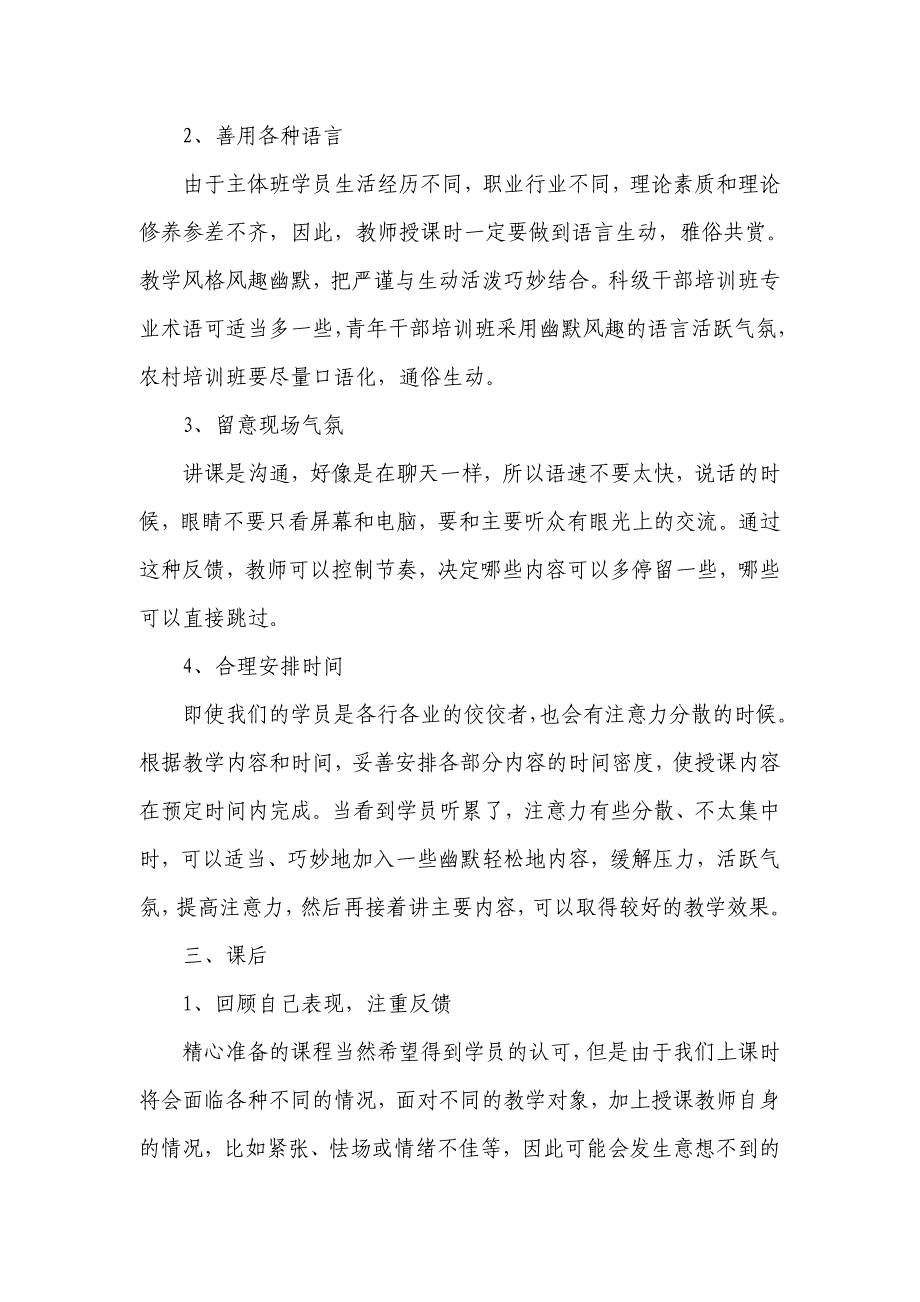 2、善用各种语言
由于主体班学员生活经历不同，职业行业不同，理论素质和理论
修养参差不齐，因此，教师授课时一定要做到语言生动，雅俗共赏。
教学风格风趣幽默，把严谨与生动活泼巧妙结合。科级干部培训班专
业术语可适当多一些，青年干部培训班采用幽默风趣的语言活跃气氛，
农村培训班要尽量口语化，通俗生动。
3、留意现场气氛
讲课是沟通，好像是在聊天一样，所以语速不要太快，说话的时
候，眼睛不要只看屏幕和电脑，要和主要听众有眼光上的交流。通过
这种反馈，教师可以控制节奏，决定哪些内容可以多停留一些，哪些
可以直接跳过。
4、合理安排时间
即使我们的学员是各行各业的佼佼者，也会有注意力分散的时候。
根据教学内容和时间，妥善安排各部分内容的时间密度，使授课内容
在预定时间内完成。当看到学员听累了，注意力有些分散、不太集中
时，可以适当、巧妙地加入一些幽默轻松地内容，缓解压力，活跃气
氛，提高注意力，然后再接着讲主要内容，可以取得较好的教学效果。
三、课后
1、回顾自己表现，注重反馈
精心准备的课程当然希望得到学员的认可，但是由于我们上课时
将会面临各种不同的情况，面对不同的教学对象，加上授课教师自身
的情况，比如紧张、怯场或情绪不佳等，因此可能会发生意想不到的